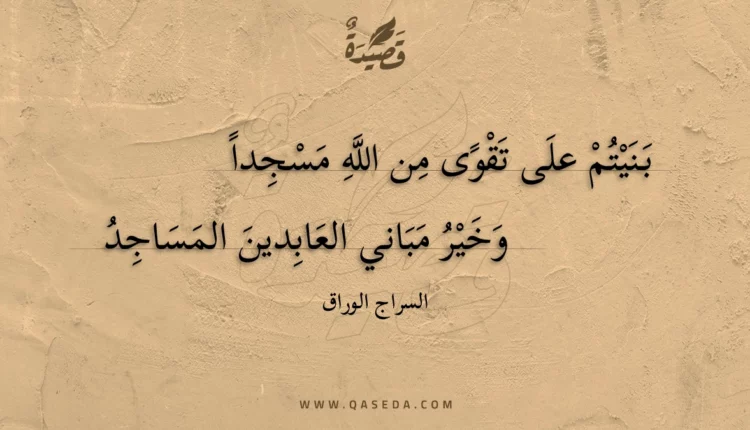 قَصِيدَةٌ
بَنَيْتُمْ علَى تَقْوًى مِن اللَّهِ مَسْجِداً
وَخَيْرُ مَبَاني العَابِدينَ المَسَاجِدُ
السراج الوراق
WWW.QASEDA.COM